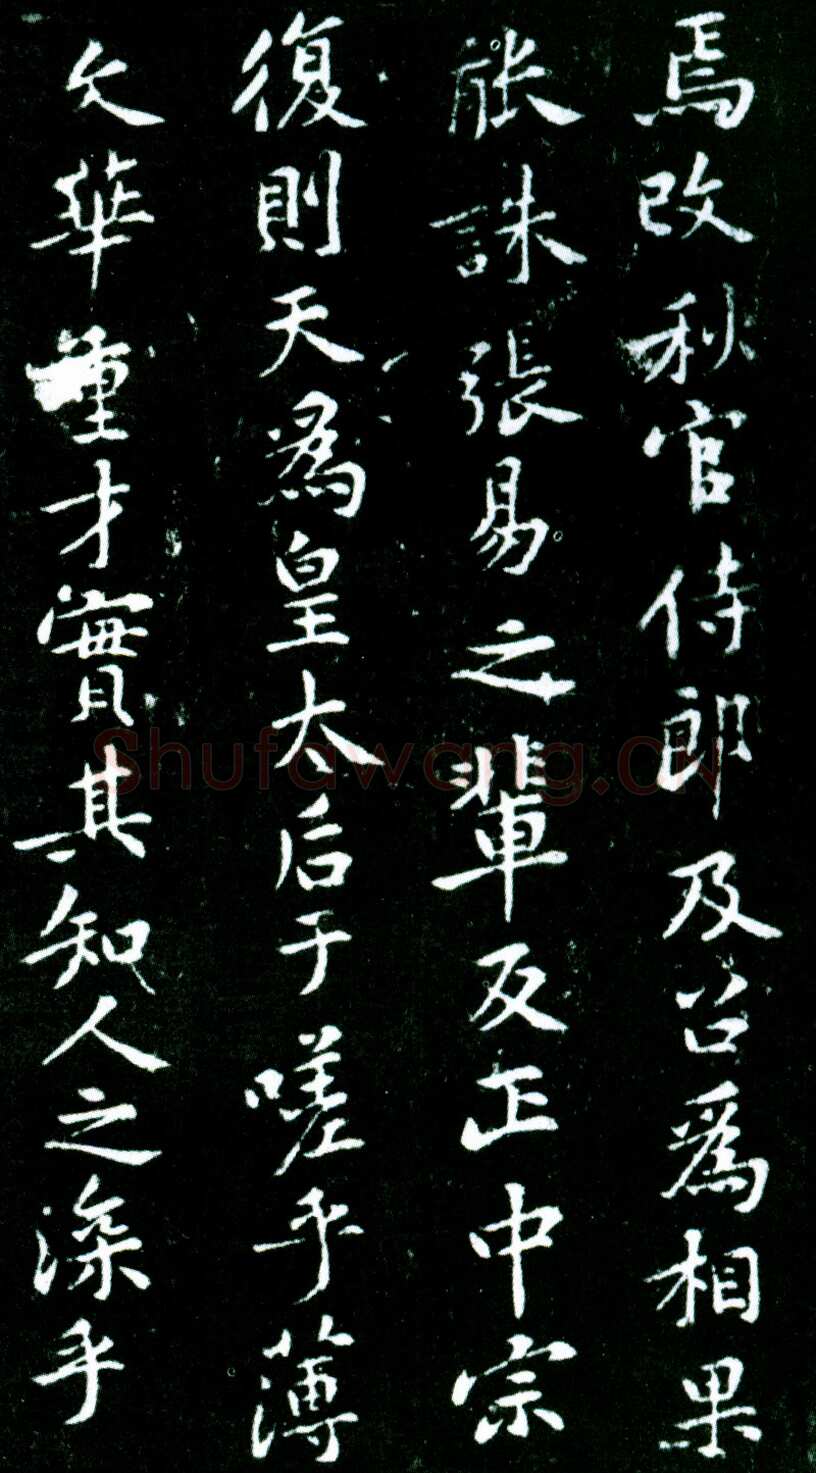 焉改秋官侍郎及召為相果
能誅張易之輩反正中宗
復則天為皇太后于嗟乎薄
文華重才實其知人之深乎
Shufawang.CN